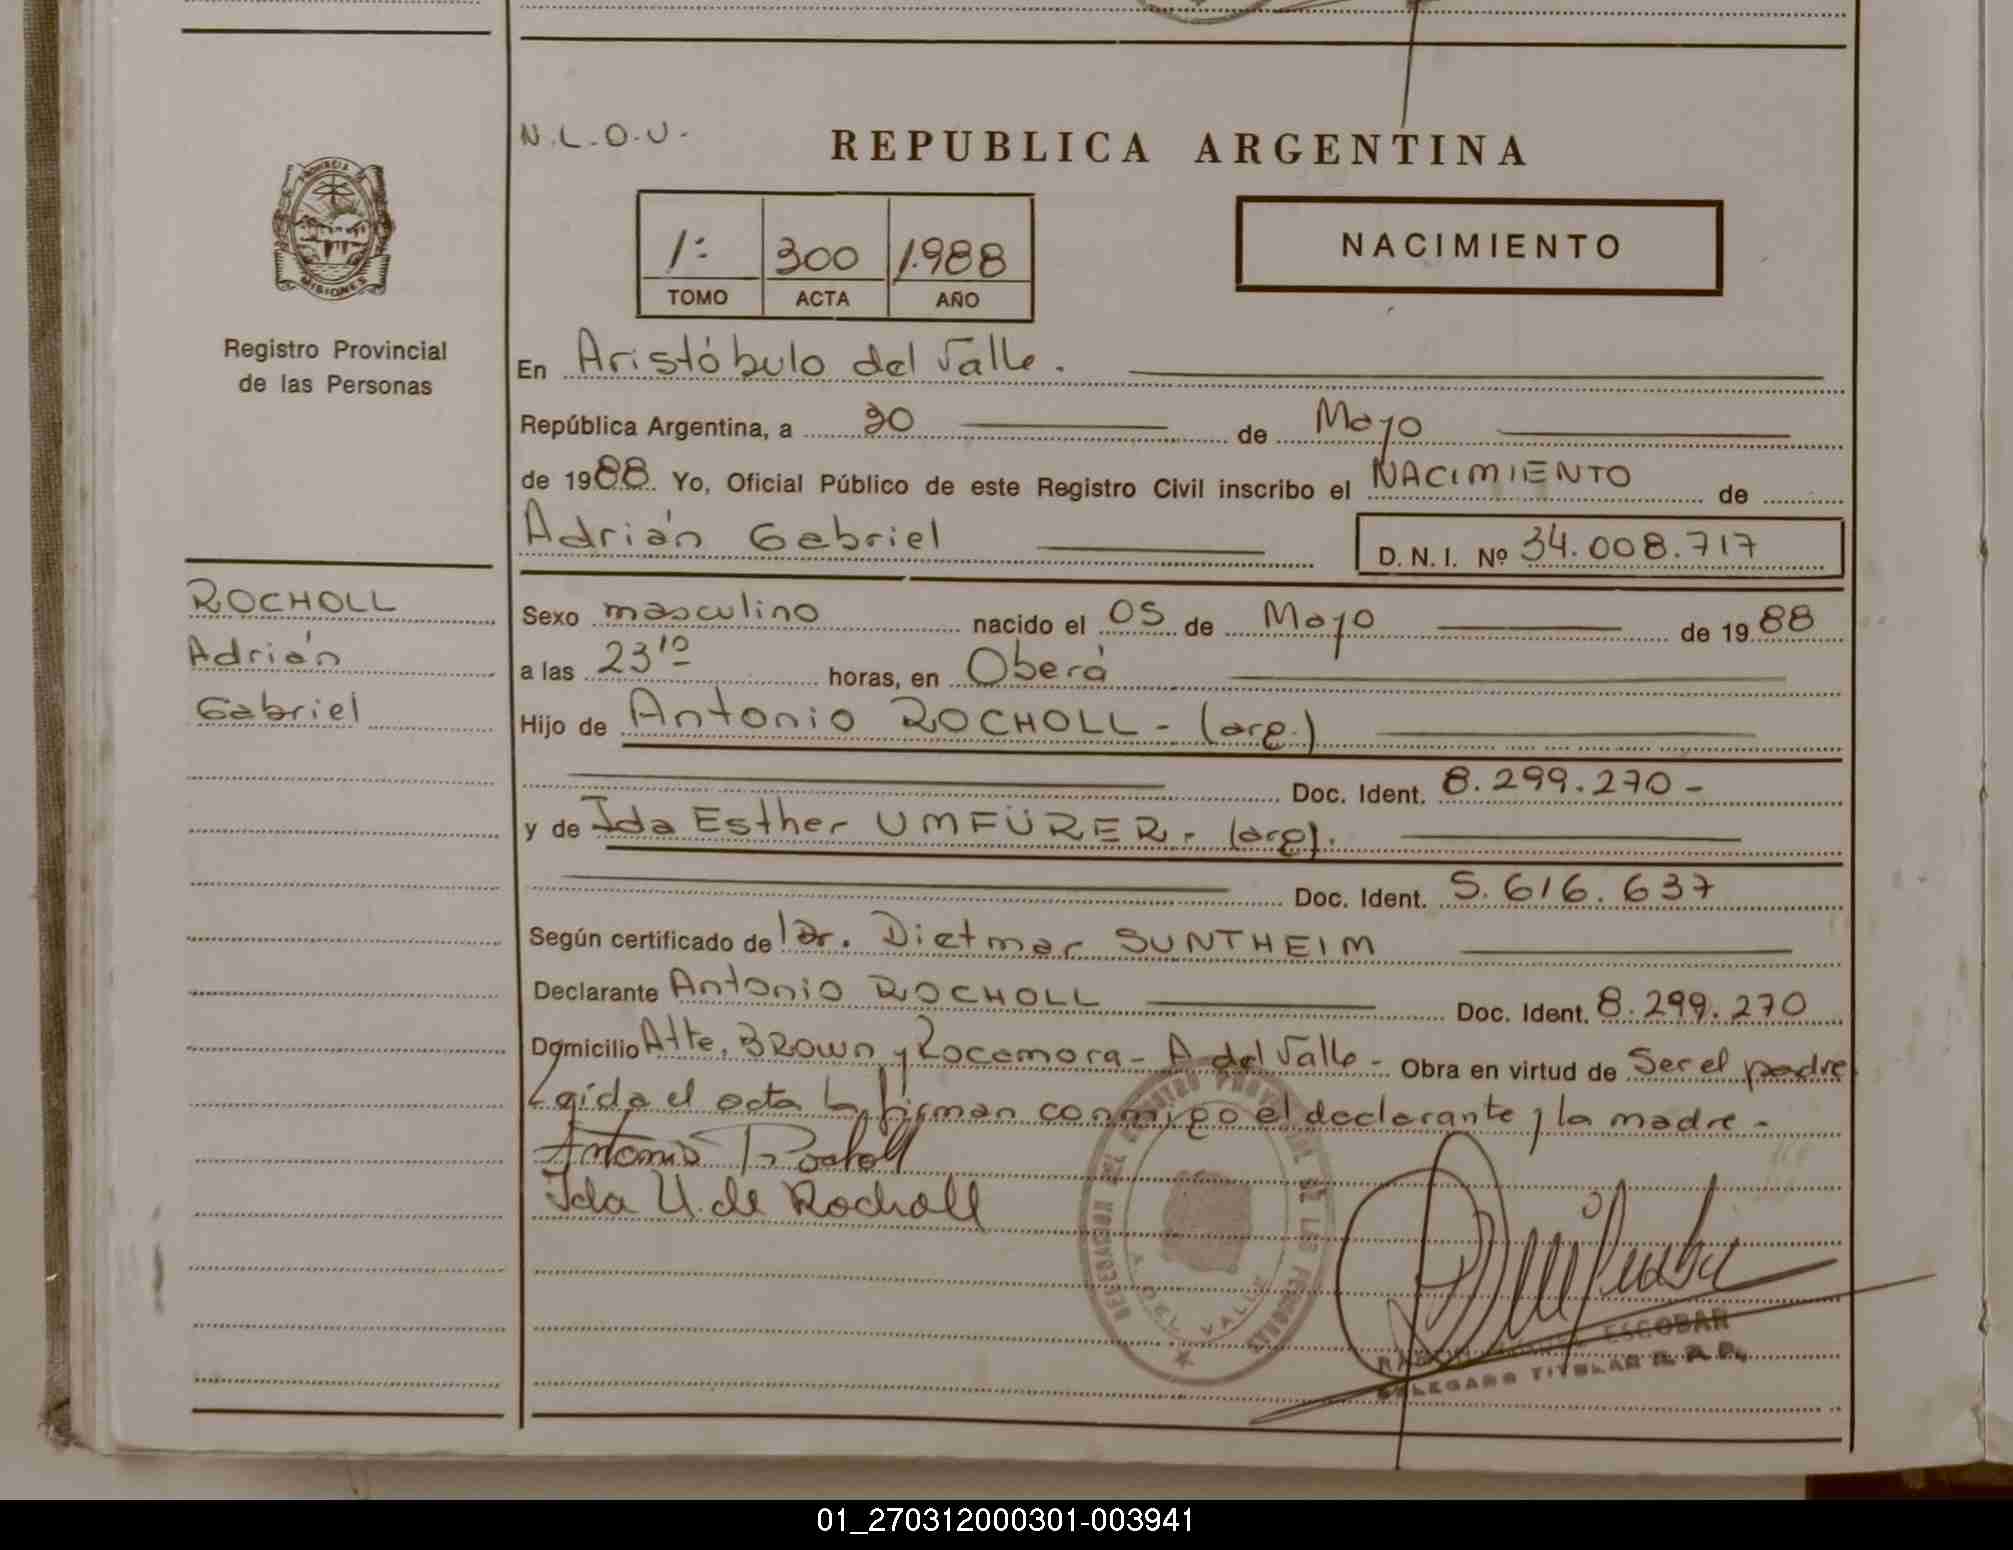 N.L.O.U.-
REPUBLICA ARGENTINA
PROVINCIA DE
MISIONES
1:
300
1.988
TOMO
ACTA
AÑO
NACIMIENTO
Registro Provincial
de las Personas
En Aristóbulo del Valle.
República Argentina, a 30 de Mayo
de 1988. Yo, Oficial Público de este Registro Civil inscribo el NACIMIENTO de
Adrián Gabriel
D. N. I. Nº 34.008.717
ROCHOLL
Adrián
Gabriel
Sexo masculino nacido el 05 de Mayo de 1988
a las 23 10 horas, en Oberá
Hijo de Antonio ROCHOLL - (arg.)
Doc. Ident. 8.299.270-
y de Ida Esther UMFÜRER - (arg).
Doc. Ident. 5.616.637
Según certificado de Dr. Dietmar SUNTHEIM
Declarante Antonio ROCHOLL Doc. Ident. 8.299.270
Domicilio Alte. BROWN y Rocamora - A del Valle - Obra en virtud de Ser el padre
Leída el acta la firman conmigo el declarante y la madre -
Antonio Rocholl
Ida U. de Rocholl
DELEGACION DEL REGISTRO PROVINCIAL DE LAS PERSONAS
A. DEL VALLE
ESCOBAR
DELEGADO TITULAR R. P. P.
01_270312000301-003941